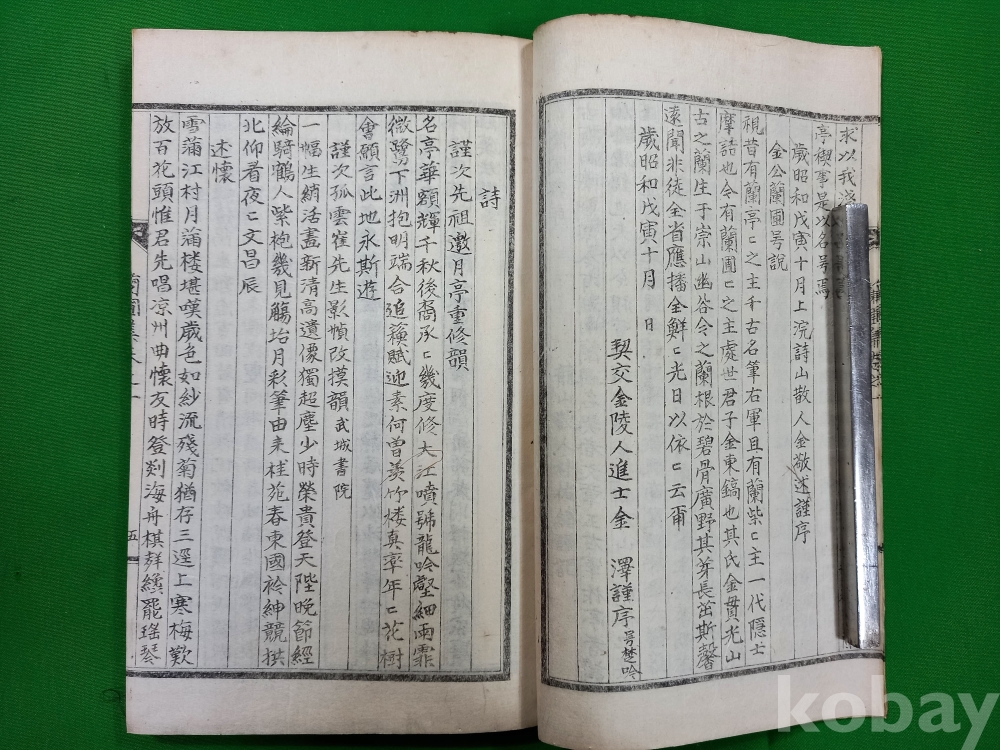 求以我
亭稧事是以名号焉
歲昭和戊寅十月上浣詩山散人金敬述謹序
金公蘭圃号說
視昔有蘭亭〻之主千古名筆右軍且有蘭柴〻主一代隱士
摩詰也今有蘭圃〻之主處世君子金東鎬也其氏金貫光山
古之蘭生于崇山幽谷今之蘭根於碧骨廣野其芽長茁斯馨
遠聞非徒全省應播全鮮〻光日以依〻云爾
歲昭和戊寅十月 日
契交金陵人進士金 澤謹序 号楚吟
詩
謹次先祖邀月亭重修韻
名亭華額輝千秋後裔承〻幾度修大江噴號龍吟壑細雨霏
微鷺下洲抱明端合追蘓賦迎素何曾羨竹楼真率年〻花樹
會願言此地永斯遊
謹次孤雲崔先生影幀改摸韻 武城書院
一幅生綃活畫新清高遺像獨超塵少時榮貴登天陛晚節經
綸騎鶴人紫袍幾見觴坮月彩筆由来桂苑春東國衿紳競拱
北仰看夜〻文昌辰
述懷
雪蒲江村月蒲楼堪嘆歲色如紗流殘菊猶存三逕上寒梅歎
放百花頭惟君先唱凉州曲懷友時登剡海舟棋朋續罷瑤琴
五
kobay